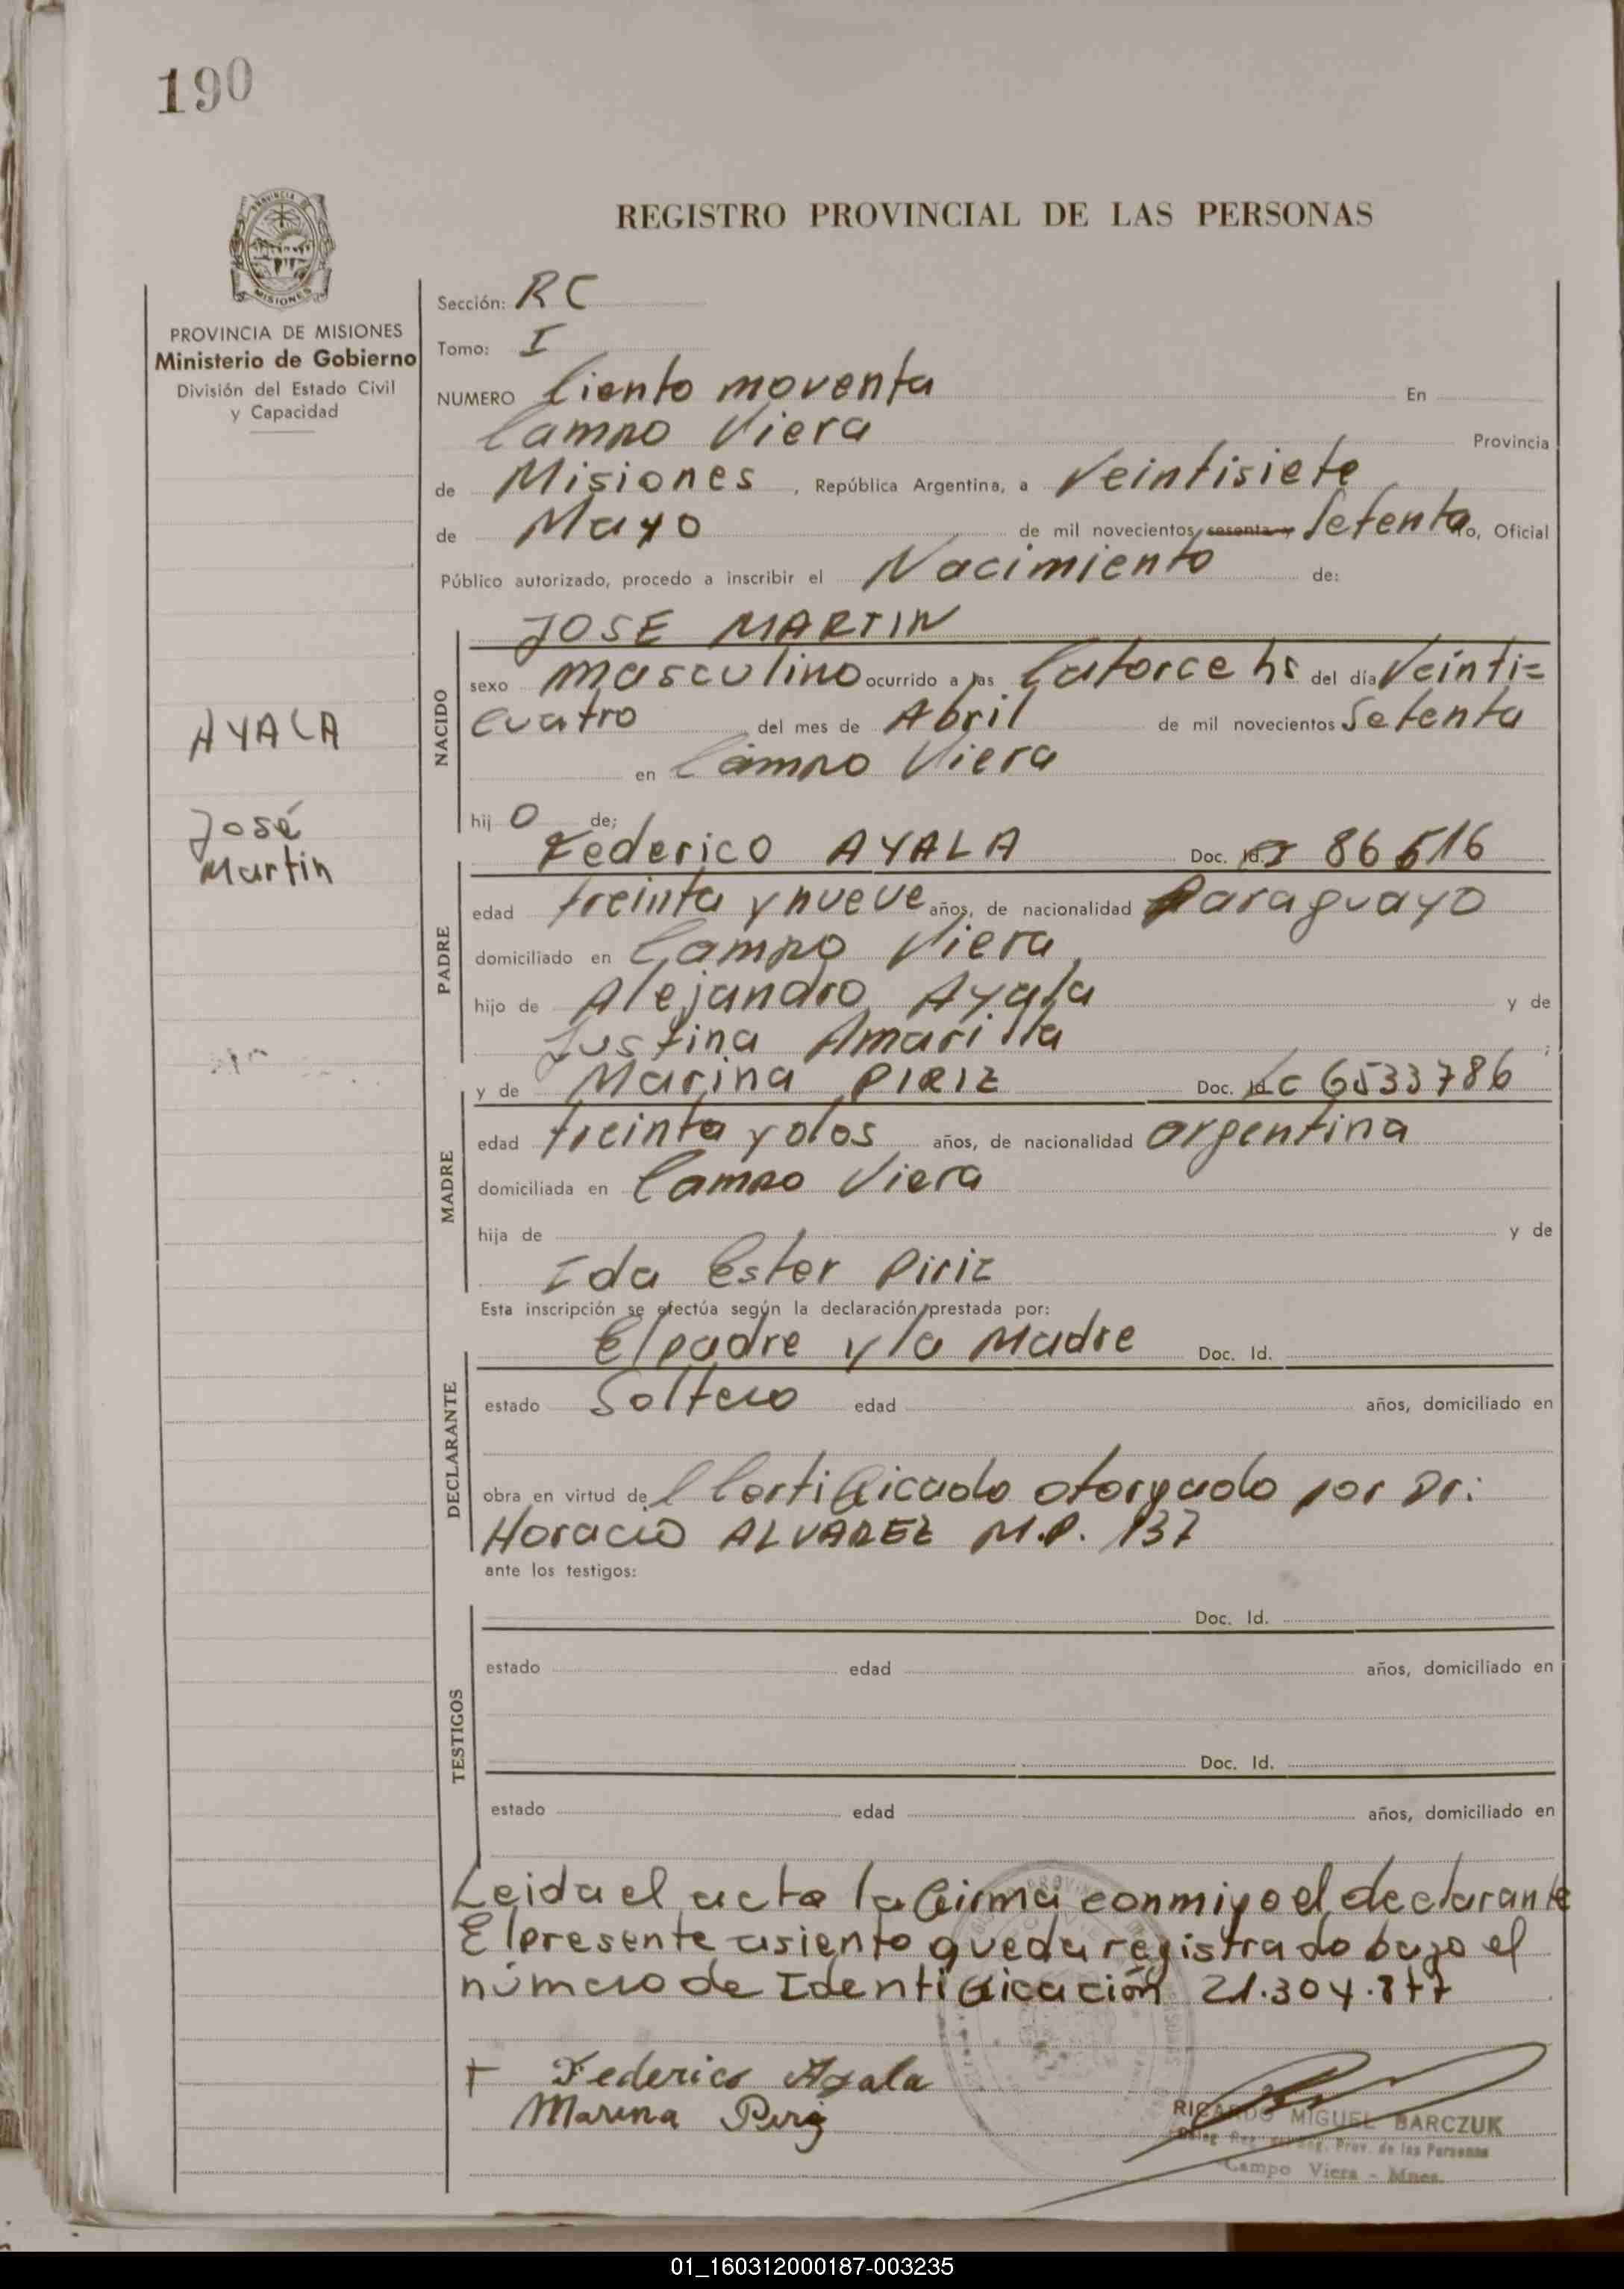 190
REGISTRO PROVINCIAL DE LAS PERSONAS
PROVINCIA DE MISIONES
Ministerio de Gobierno
División del Estado Civil
y Capacidad
AYALA
José
Martin
Sección: RC
Tomo: I
NUMERO Ciento noventa En
Campo Viera Provincia
de Misiones, República Argentina, a Veintisiete
de Mayo de mil novecientos sesenta y Setenta Yo, Oficial
Público autorizado, procedo a inscribir el Nacimiento de:
NACIDO
JOSE MARTIN
sexo masculino ocurrido a las Catorce hs del día Veinti=
cuatro del mes de Abril de mil novecientos Setenta
en Campo Viera
hij o de;
PADRE
Federico AYALA Doc. Id. 86516
edad treinta y nueve años, de nacionalidad Paraguayo
domiciliado en Campo Viera
hijo de Alejandro Ayala y de
Justina Amarilla;
MADRE
y de Marina PIRIZ Doc. LC 6533786
edad treinta y dos años, de nacionalidad argentina
domiciliada en Campo Viera
hija de y de
Ida Ester Piriz
Esta inscripción se efectúa según la declaración prestada por:
DECLARANTE
El padre y la Madre Doc. Id.
estado Soltero edad años, domiciliado en
obra en virtud del Certificado otorgado por Dr:
Horacio ALVAREZ M.P. 137
ante los testigos:
TESTIGOS
Doc. Id.
estado edad años, domiciliado en
Doc. Id.
estado edad años, domiciliado en
Leida el acta la firma conmigo el declarante
El presente asiento queda registrado bajo el
número de Identificación 21.304.877
+ Federico Ayala
Marina Piriz
RICARDO MIGUEL BARCZUK
Prov. de las Personas
Campo Viera - Mnes.
01_160312000187-003235